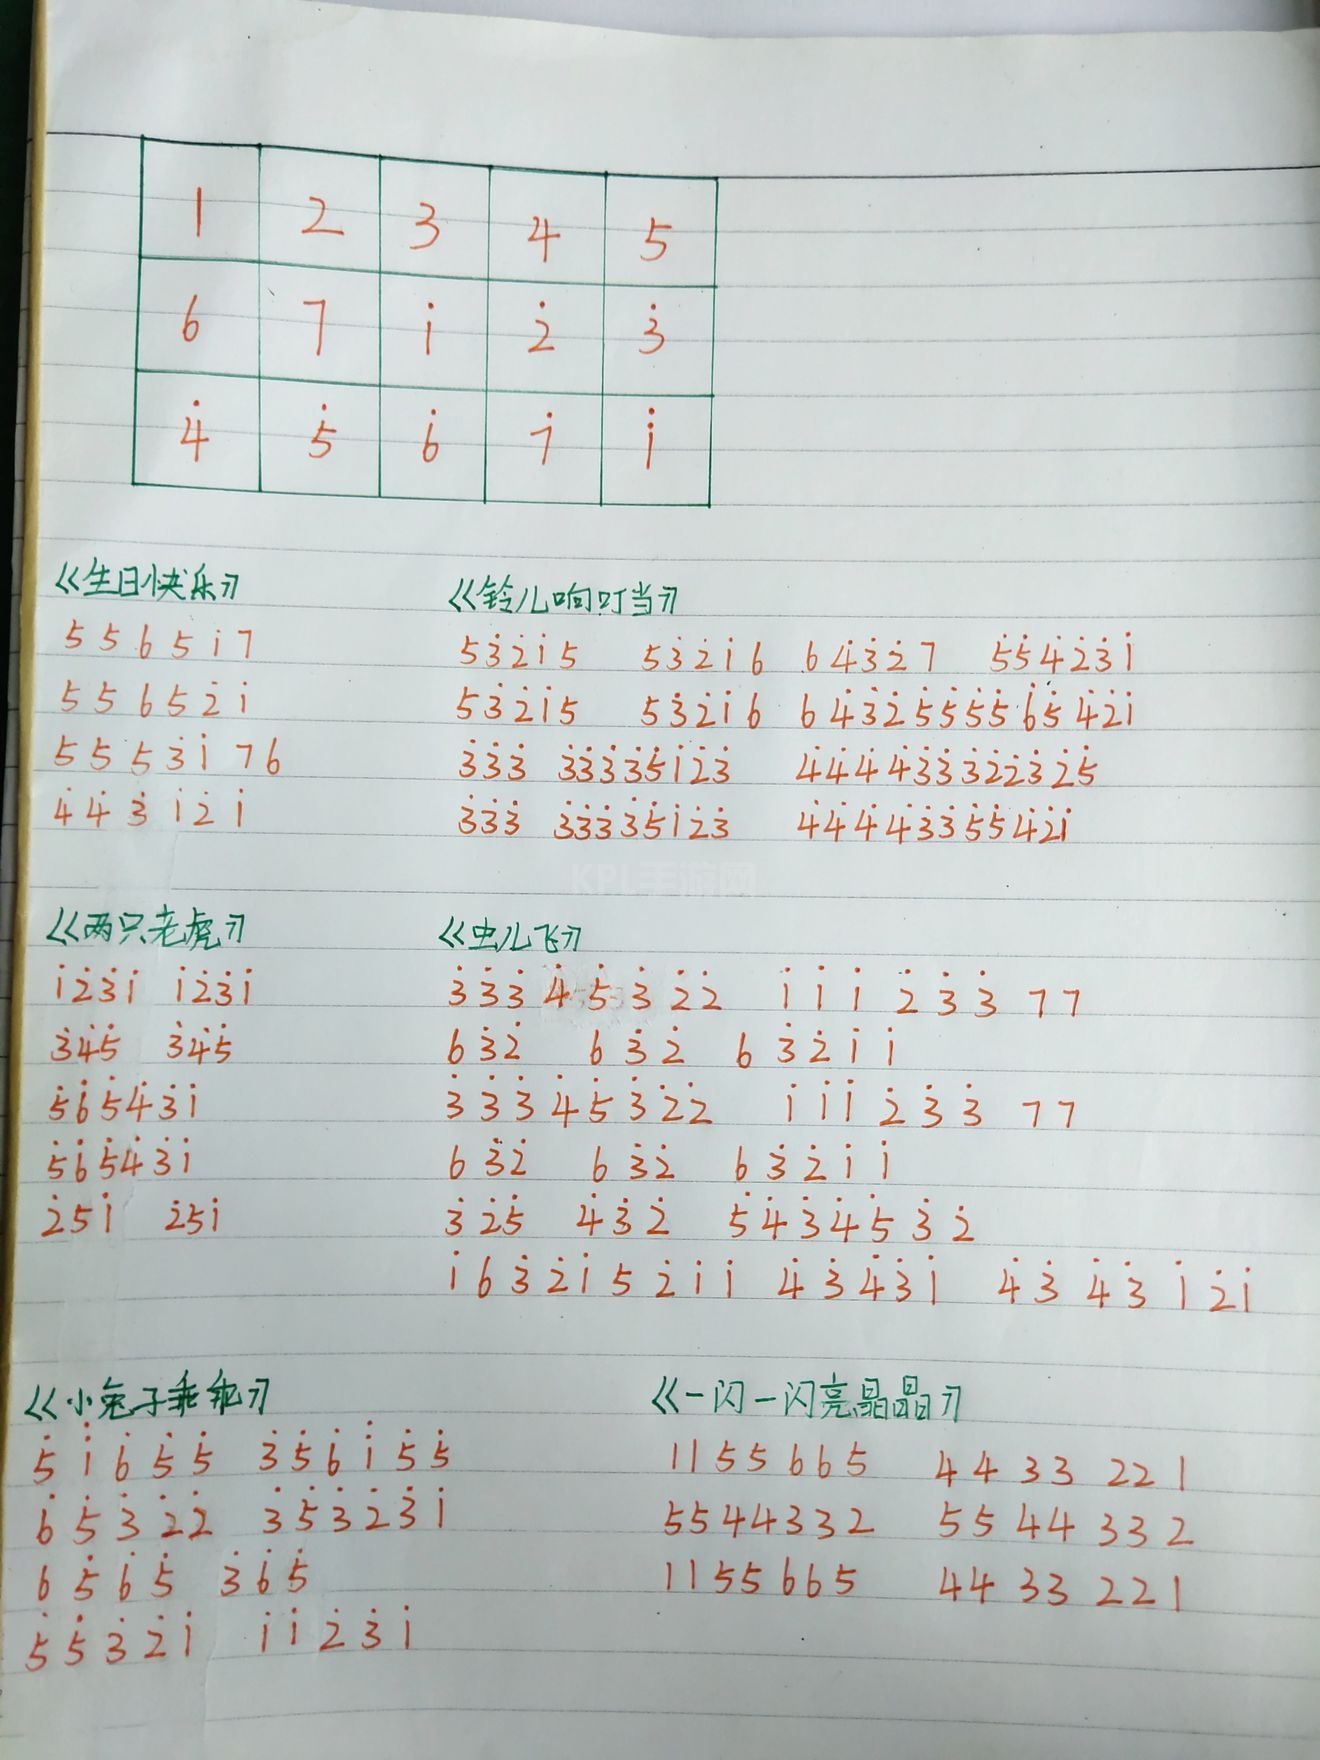 1 2 3 4 5
6 7 1̇ 2̇ 3̇
4̇ 5̇ 6̇ 7̇ 1̈
《生日快乐》
5 5 6 5 1̇ 7
5 5 6 5 2̇ 1̇
5 5 5̇ 3̇ 1̇ 7 6
4̇ 4̇ 3̇ 1̇ 2̇ 1̇
《铃儿响叮当》
53̇2̇1̇5 53̇2̇1̇6 64̇3̇2̇7 5̇5̇4̇2̇3̇1̇
53̇2̇1̇5 53̇2̇1̇6 64̇3̇2̇5̇5̇5̇5̇6̇5̇4̇2̇1̇
3̇3̇3̇ 3̇3̇3̇3̇5̇1̇2̇3̇ 4̇4̇4̇4̇3̇3̇3̇2̇2̇3̇2̇5̇
3̇3̇3̇ 3̇3̇3̇3̇5̇1̇2̇3̇ 4̇4̇4̇4̇3̇3̇5̇5̇4̇2̇1̇
KPL手游网
《两只老虎》
1̇2̇3̇1̇ 1̇2̇3̇1̇
3̇4̇5̇ 3̇4̇5̇
5̇6̇5̇4̇3̇1̇
5̇6̇5̇4̇3̇1̇
2̇51̇ 2̇51̇
《虫儿飞》
3̇ 3̇ 3̇ 4̇ 5̇ 3̇ 2̇ 2̇ 1̇ 1̇ 1̇ 2̇ 3̇ 3̇ 7 7
6 3̇ 2̇ 6 3̇ 2̇ 6 3̇ 2̇ 1̇ 1̇
3̇ 3̇ 3̇ 4̇ 5̇ 3̇ 2̇ 2̇ 1̇ 1̇ 1̇ 2̇ 3̇ 3̇ 7 7
6 3̇ 2̇ 6 3̇ 2̇ 6 3̇ 2̇ 1̇ 1̇
3̇ 2̇ 5̇ 4̇ 3̇ 2̇ 5̇ 4̇ 3̇ 4̇ 5̇ 3̇ 2̇
1̇ 6 3̇ 2̇ 1̇ 5 2̇ 1̇ 1̇ 4̇ 3̇ 4̇ 3̇ 1̇ 4̇ 3̇ 4̇ 3̇ 1̇ 2̇ 1̇
《小兔子乖乖》
5̇ 1̈ 6̇ 5̇ 5̇ 3̇ 5̇ 6̇ 1̈ 5̇ 5̇
6̇ 5̇ 3̇ 2̇ 2̇ 3̇ 5̇ 3̇ 2̇ 3̇ 1̇
6 5̇ 6̇ 5̇ 3̇ 6̇ 5̇
5̇ 5̇ 3̇ 2̇ 1̇ 1̇ 1̇ 2̇ 3̇ 1̇
《一闪一闪亮晶晶》
1 1 5 5 6 6 5 4 4 3 3 2 2 1
5 5 4 4 3 3 2 5 5 4 4 3 3 2
1 1 5 5 6 6 5 4 4 3 3 2 2 1